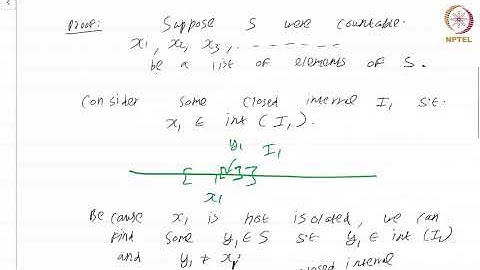 Proof: Suppose S were countable.
x1, x2, x3, . - - - - - - -
be a list of elements of S.
NPTEL
Consider some closed interval I1 s.t.
x1 ∈ int (I1).
y1 I1
x1
Because x1 is not isolated, we can
find some y1 ∈ S s.t. y1 ∈ int (I1)
and y1 ≠ x1.
closed interval